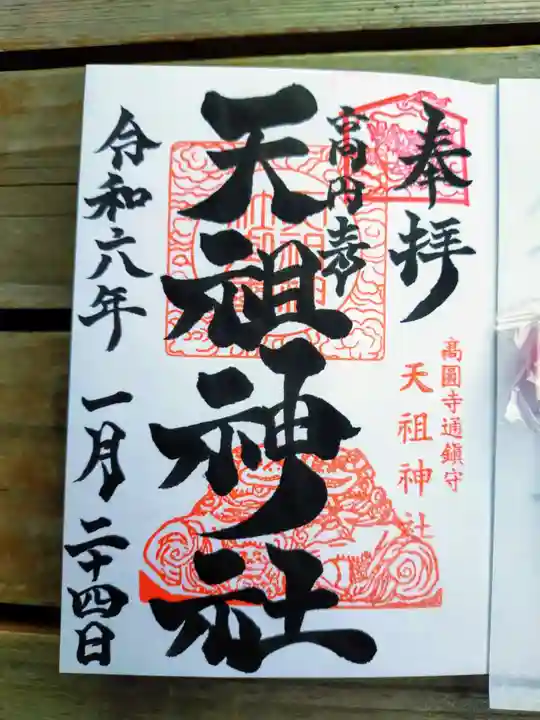 奉拝
髙圓寺通鎮守
天祖神社
高円寺
天祖神社
令和六年 一月二十四日